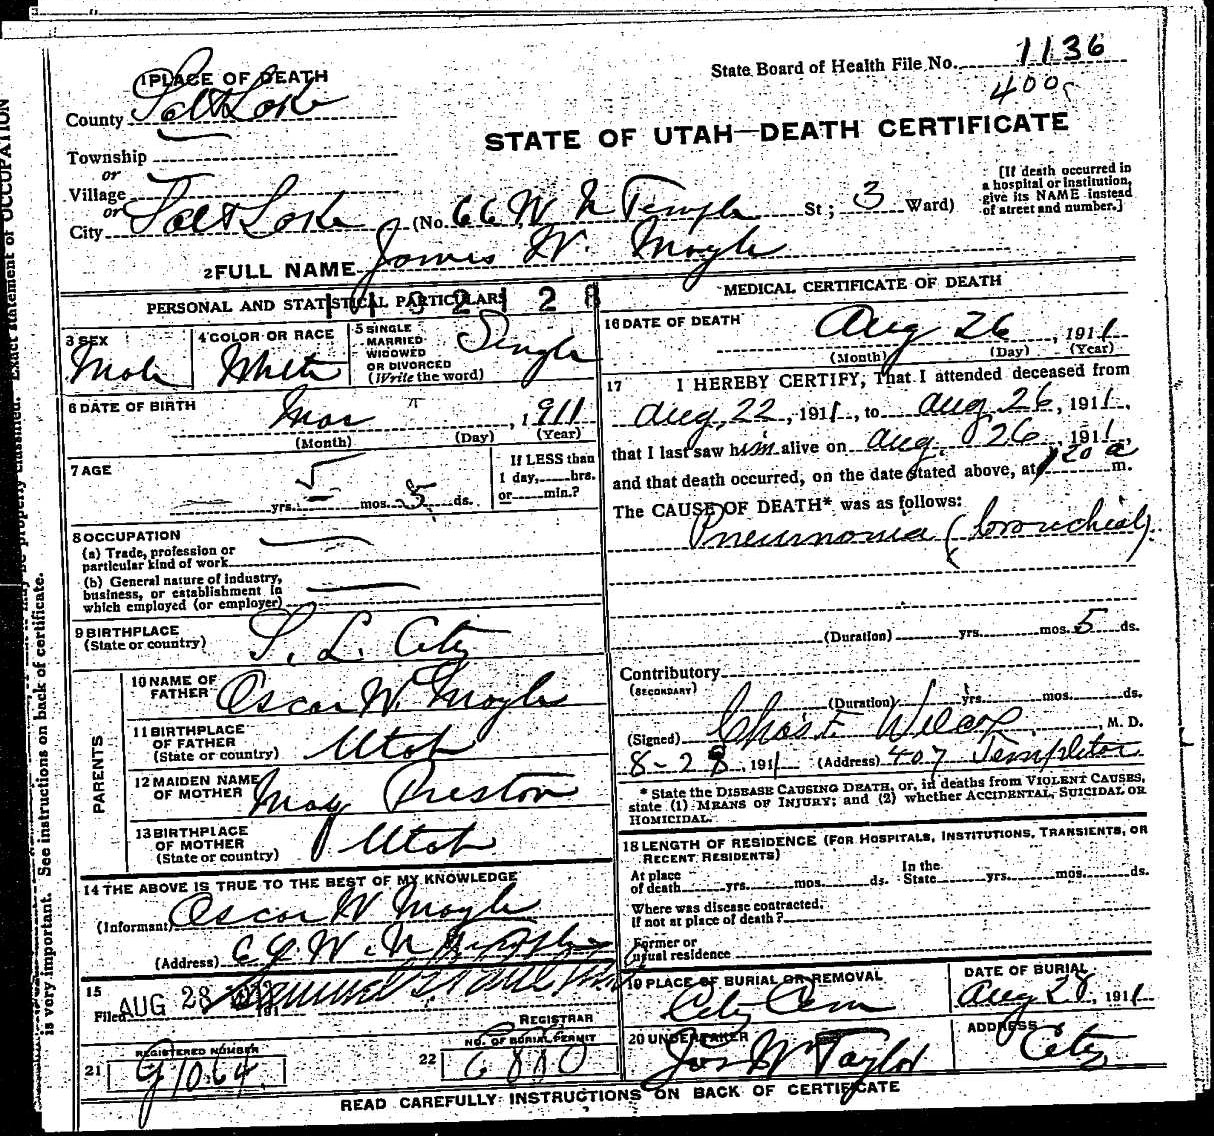 1 PLACE OF DEATH
State Board of Health File No. 1136
400
County Salt Lake
STATE OF UTAH—DEATH CERTIFICATE
Township
or
Village
or
City Salt Lake (No. 66 W N Temple St ; 3 Ward)
[If death occurred in
a hospital or institution,
give its NAME instead
of street and number.]
2 FULL NAME James W. Moyle
PERSONAL AND STATISTICAL PARTICULARS
3 SEX
Male
4 COLOR OR RACE
White
5 SINGLE
MARRIED
WIDOWED
OR DIVORCED
(Write the word)
Single
6 DATE OF BIRTH
Mar , 1911
(Month) (Day) (Year)
7 AGE
yrs. 5 mos. 5 ds.
If LESS than
1 day, hrs.
or min.?
8 OCCUPATION
(a) Trade, profession or
particular kind of work
(b) General nature of industry,
business, or establishment in
which employed (or employer)
9 BIRTHPLACE
(State or country)
S. L. City
PARENTS
10 NAME OF
FATHER
Oscar W. Moyle
11 BIRTHPLACE
OF FATHER
(State or country)
Utah
12 MAIDEN NAME
OF MOTHER
May Preston
13 BIRTHPLACE
OF MOTHER
(State or country)
Utah
14 THE ABOVE IS TRUE TO THE BEST OF MY KNOWLEDGE
(Informant) Oscar W Moyle
(Address) 66 W. N Temple
15
Filed AUG 28
REGISTRAR
REGISTERED NUMBER
21
NO. OF BURIAL PERMIT
22
MEDICAL CERTIFICATE OF DEATH
16 DATE OF DEATH
Aug 26 , 1911
(Month) (Day) (Year)
17 I HEREBY CERTIFY, That I attended deceased from
Aug, 22 , 1911, to Aug 26 , 1911,
that I last saw him alive on Aug. 26 , 1911,
and that death occurred, on the date stated above, at 120 a m.
The CAUSE OF DEATH* was as follows:
Pneumonia (bronchial).
(Duration) yrs. mos. 5 ds.
Contributory
(SECONDARY)
(Duration) yrs. mos. ds.
(Signed) Chas. F. Wilcox , M. D.
8-28, 1911 (Address) 407 Templeton
* State the DISEASE CAUSING DEATH, or, in deaths from VIOLENT CAUSES,
state (1) MEANS OF INJURY; and (2) whether ACCIDENTAL, SUICIDAL OR
HOMICIDAL.
18 LENGTH OF RESIDENCE (FOR HOSPITALS, INSTITUTIONS, TRANSIENTS, OR
RECENT RESIDENTS)
At place
of death yrs. mos. ds.
In the
State yrs. mos. ds.
Where was disease contracted,
if not at place of death?
Former or
usual residence
19 PLACE OF BURIAL OR REMOVAL
City Cem
DATE OF BURIAL
Aug 28 , 1911
20 UNDERTAKER
Jos W Taylor
ADDRESS
City
READ CAREFULLY INSTRUCTIONS ON BACK OF CERTIFICATE
is very important. See instructions on back of certificate.
Exact statement of OCCUPATION